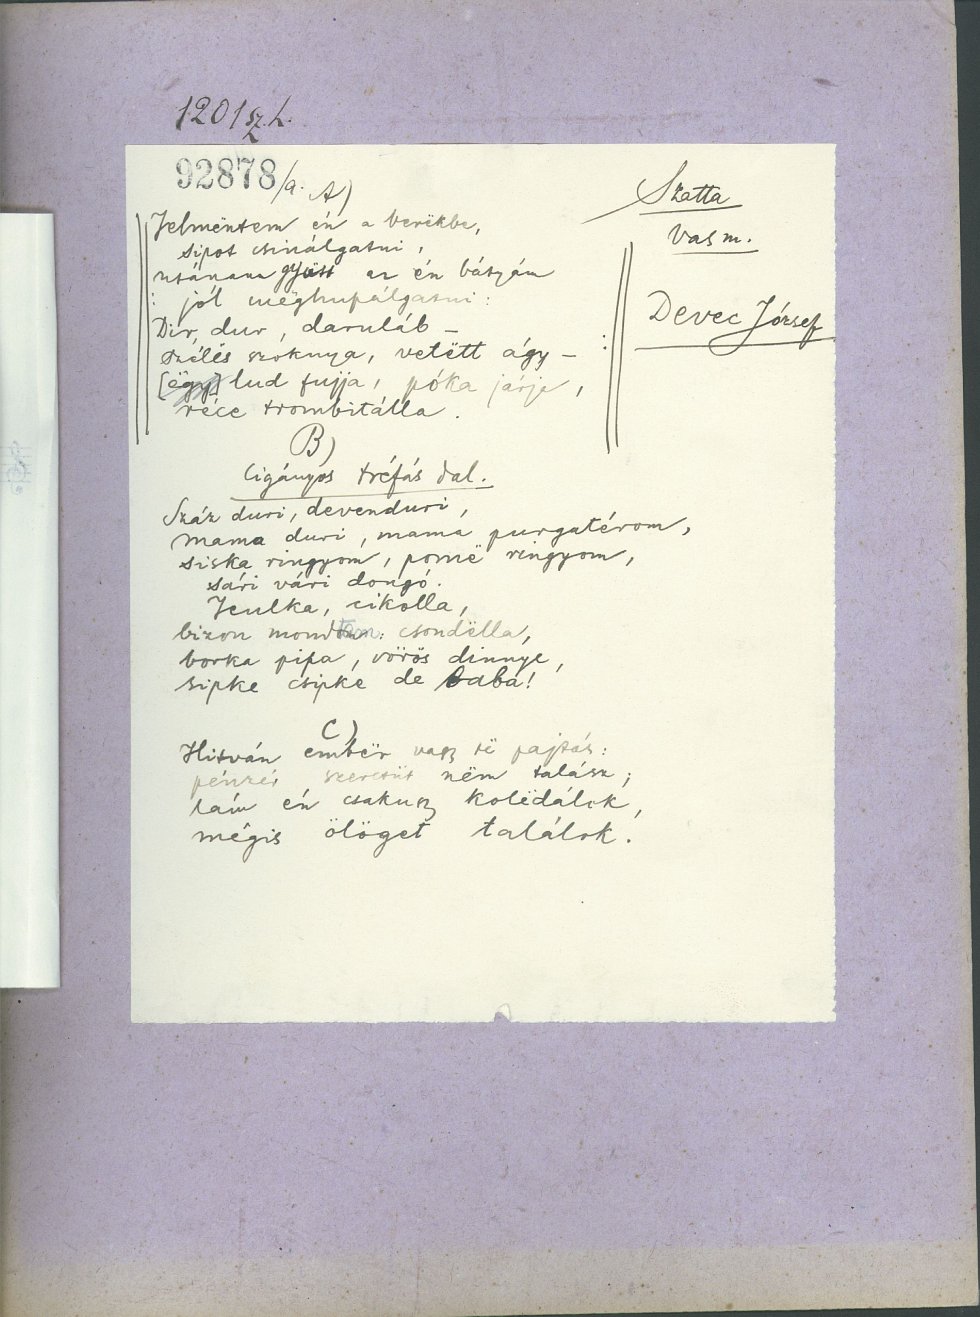 1201 sz. L.
92878/a. A)
Szatta
Vas m.
Devec József
Jelmëntem én a berëkbe,
sipot csinálgatni,
utánam gyütt az én bátyám
: jól mëghupálgatni :
Dir, dur, daruláb –
szélés szoknya, vetëtt ágy –
[ëgy] lud fujja, póka járja,
réce trombitálla.
B)
Cigányos tréfás dal.
Száz duri, devenduri,
mama duri, mama purgatérom,
siska ringyom, pomë ringyom,
sári vári dongó.
Jculka, cikolla,
bizon mondtam: csondëlla,
borka pipa, vörös dinnye,
sipke csipke de baba!
C)
Hitván embër vagy të pajtás:
pénzér szeretüt nëm talász;
lám én csakusz kolëdálok,
mégis ölöget találok.